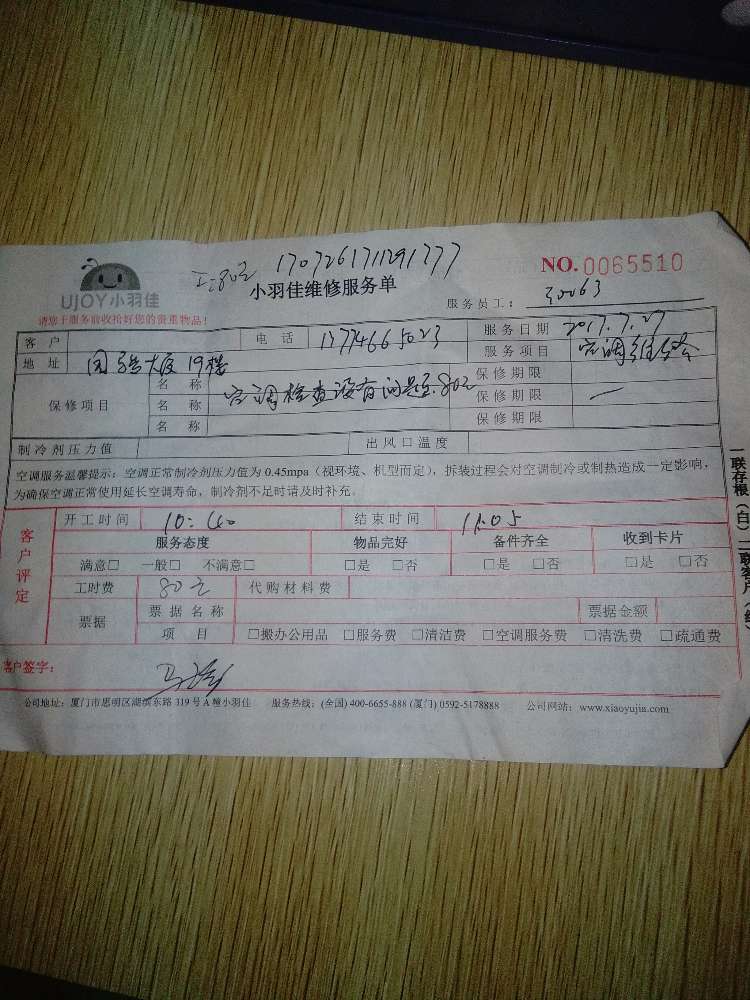 1707261711291777
NO.0065510
工:80元
UJOY小羽佳
小羽佳维修服务单
服务员工: 30063
请您于服务前收拾好您的贵重物品!
客户 电话 13774665023 服务日期 2017.7.27
地址 国骏大厦19楼 服务项目 空调维修
保修项目
名称 保修期限
名称 空调检查没有问题 80元 保修期限 —
名称 保修期限
制冷剂压力值 出风口温度
空调服务温馨提示:空调正常制冷剂压力值为 0.45mpa(视环境、机型而定),拆装过程会对空调制冷或制热造成一定影响,
为确保空调正常使用延长空调寿命,制冷剂不足时请及时补充。
客户评定
开工时间 10:40 结束时间 11:05
服务态度 物品完好 备件齐全 收到卡片
满意□ 一般□ 不满意□ □是 □否 □是 □否 □是 □否
工时费 80元 代购材料费
票据 票据名称 票据金额
项目 □搬办公用品 □服务费 □清洁费 □空调服务费 □清洗费 □疏通费
客户签字:
公司地址:厦门市思明区湖滨东路 319 号 A 幢小羽佳 服务热线:(全国) 400-6655-888 (厦门) 0592-5178888 公司网站:www.xiaoyujia.com
一联存根(白)二联客户(红)